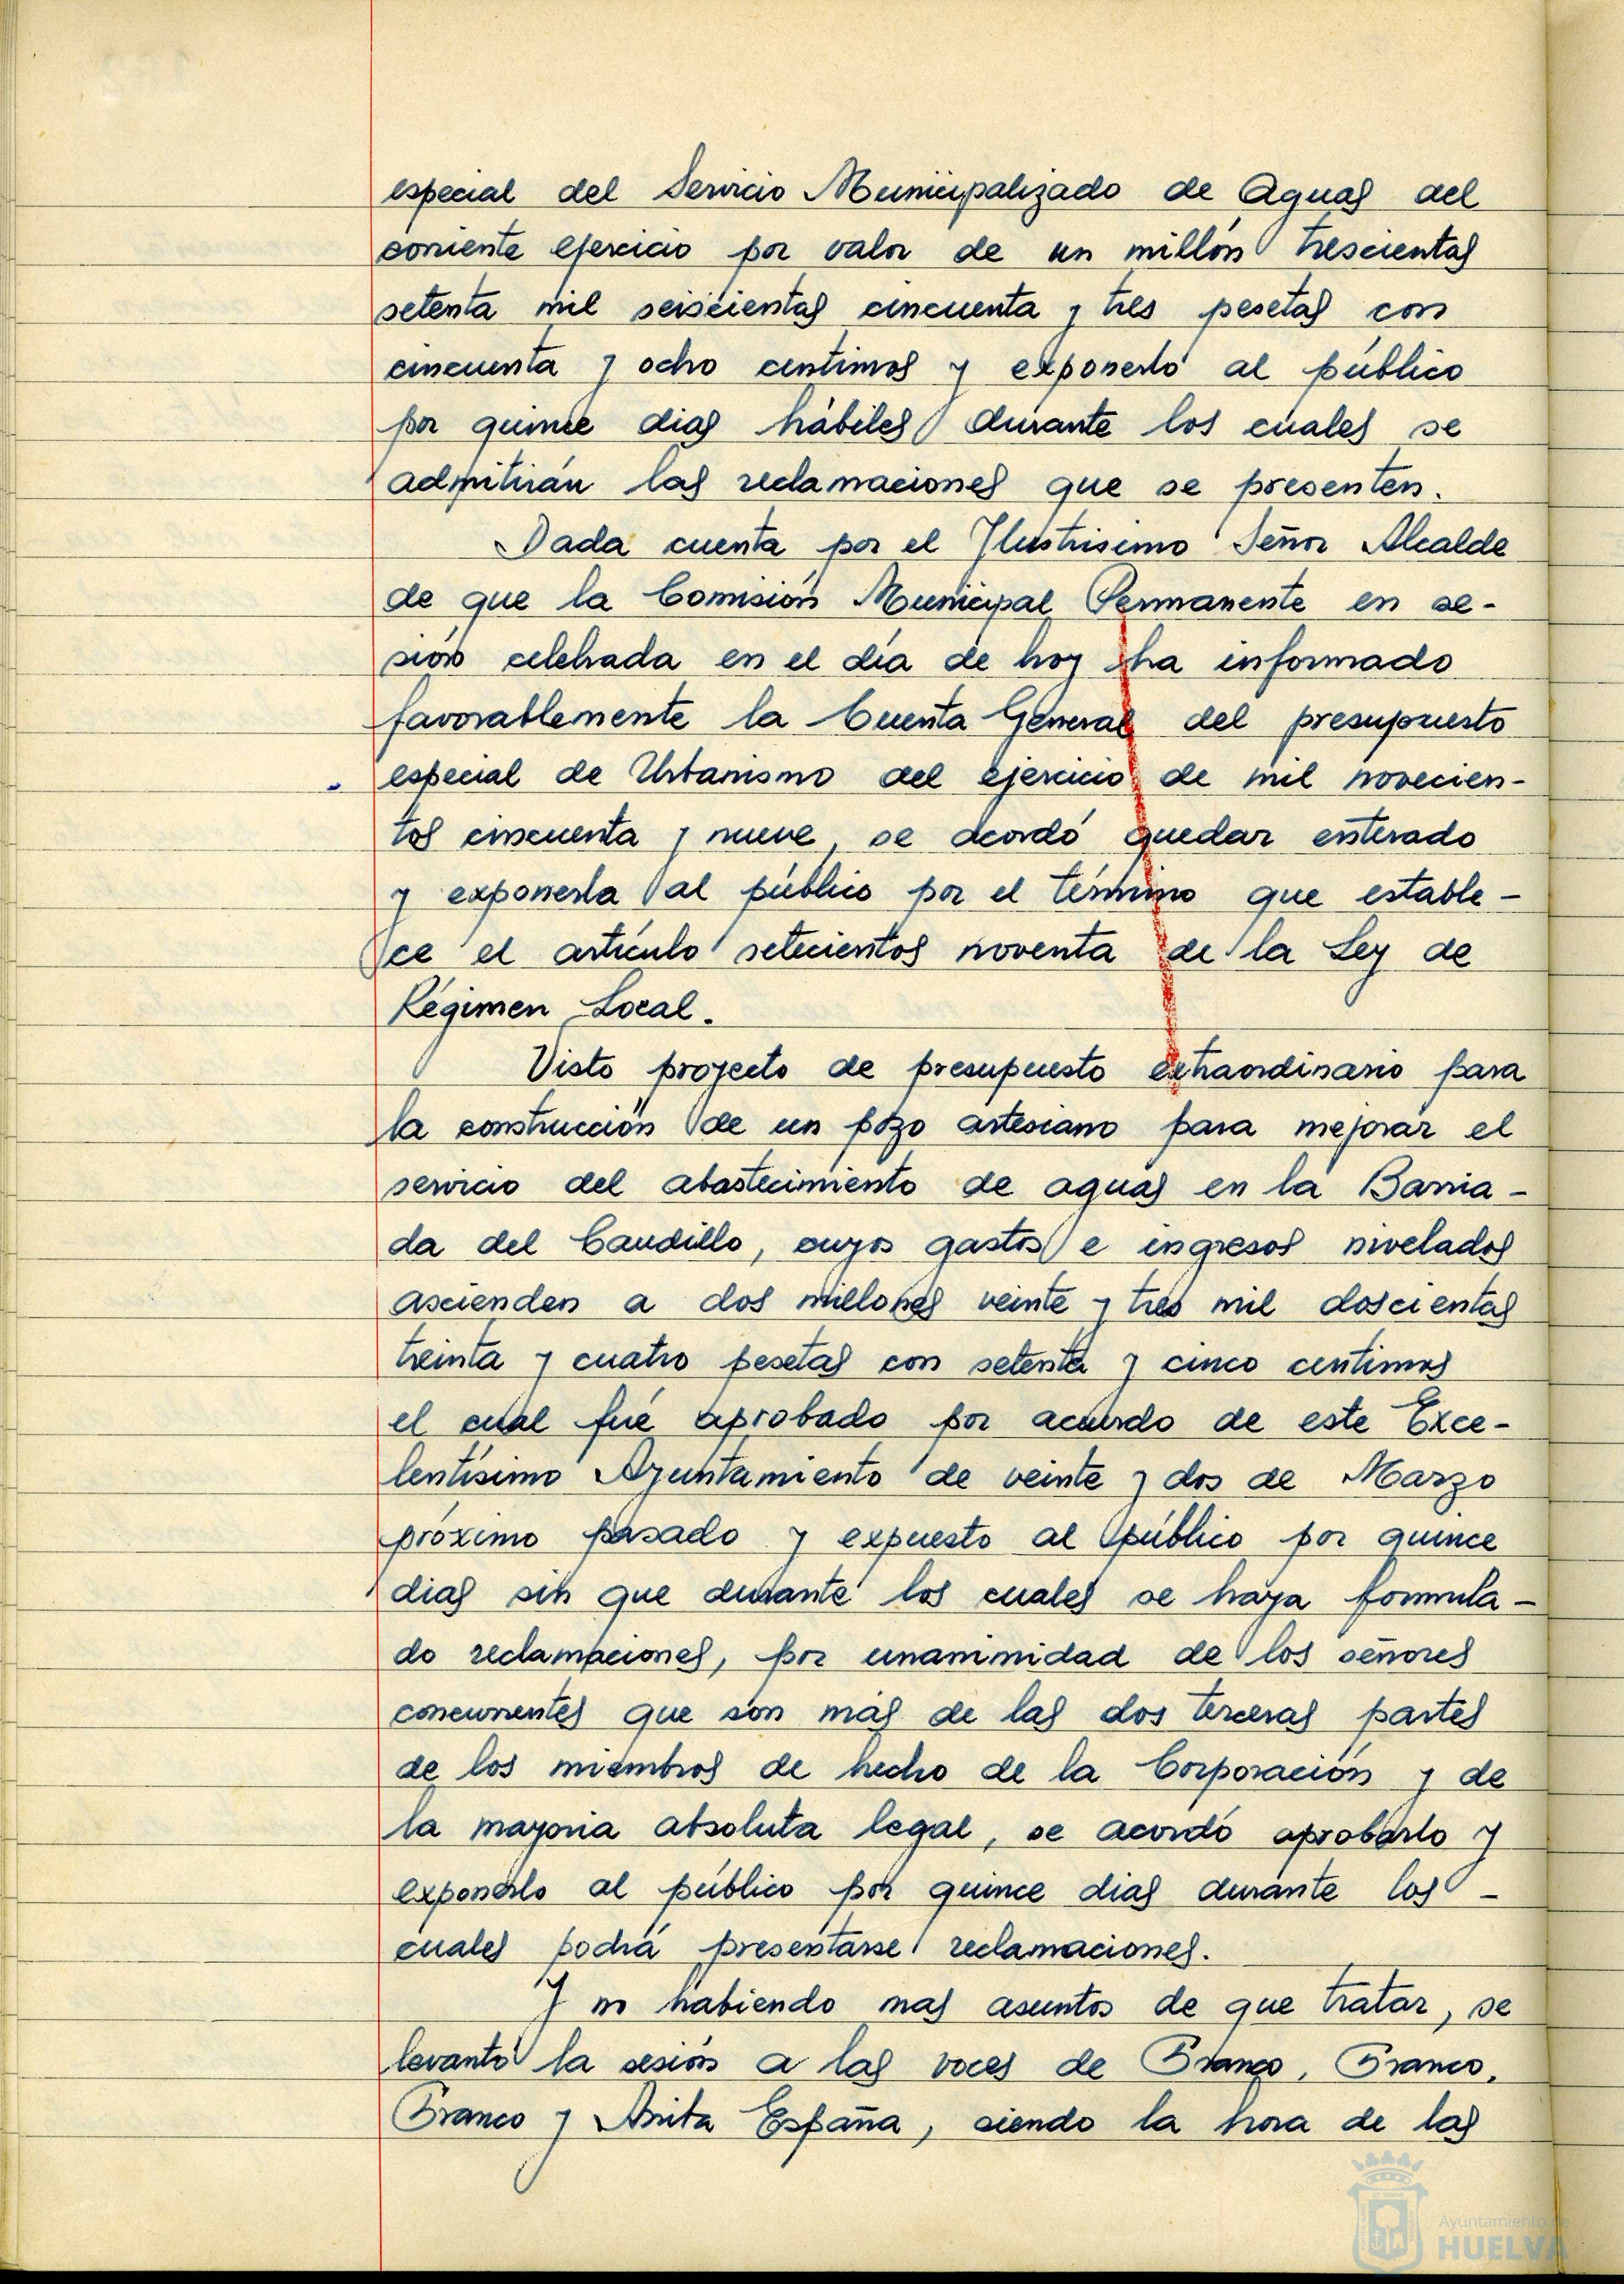 especial del Servicio Municipalizado de Aguas del
corriente ejercicio por valor de un millón trescientas
setenta mil seiscientas cincuenta y tres pesetas con
cincuenta y ocho centimos y exponerlo al público
por quince dias hábiles durante los cuales se
admitirán las reclamaciones que se presenten.
Dada cuenta por el Ilustrisimo Señor Alcalde
de que la Comisión Municipal Permanente en se-
sión celebrada en el día de hoy ha informado
favorablemente la Cuenta General del presupuesto
especial de Urbanismo del ejercicio de mil novecien-
tos cincuenta y nueve, se acordó quedar enterado
y exponerla al público por el término que estable-
ce el artículo setecientos noventa de la Ley de
Régimen Local.
Visto proyecto de presupuesto extraordinario para
la construcción de un pozo artesiano para mejorar el
servicio del abastecimiento de aguas en la Barria-
da del Caudillo, cuyos gastos e ingresos nivelados
ascienden a dos millones veinte y tres mil doscientas
treinta y cuatro pesetas con setenta y cinco centimos
el cual fué aprobado por acuerdo de este Exce-
lentísimo Ayuntamiento de veinte y dos de Marzo
próximo pasado y expuesto al público por quince
dias sin que durante los cuales se haya formula-
do reclamaciones, por unanimidad de los señores
concurrentes que son más de las dos terceras partes
de los miembros de hecho de la Corporación y de
la mayoria absoluta legal, se acordó aprobarlo y
exponerlo al público por quince dias durante los -
cuales podrá presentarse reclamaciones.
Y no habiendo mas asuntos de que tratar, se
levantó la sesión a las voces de Franco, Franco,
Franco y Arriba España, siendo la hora de las
Ayuntamiento de
HUELVA